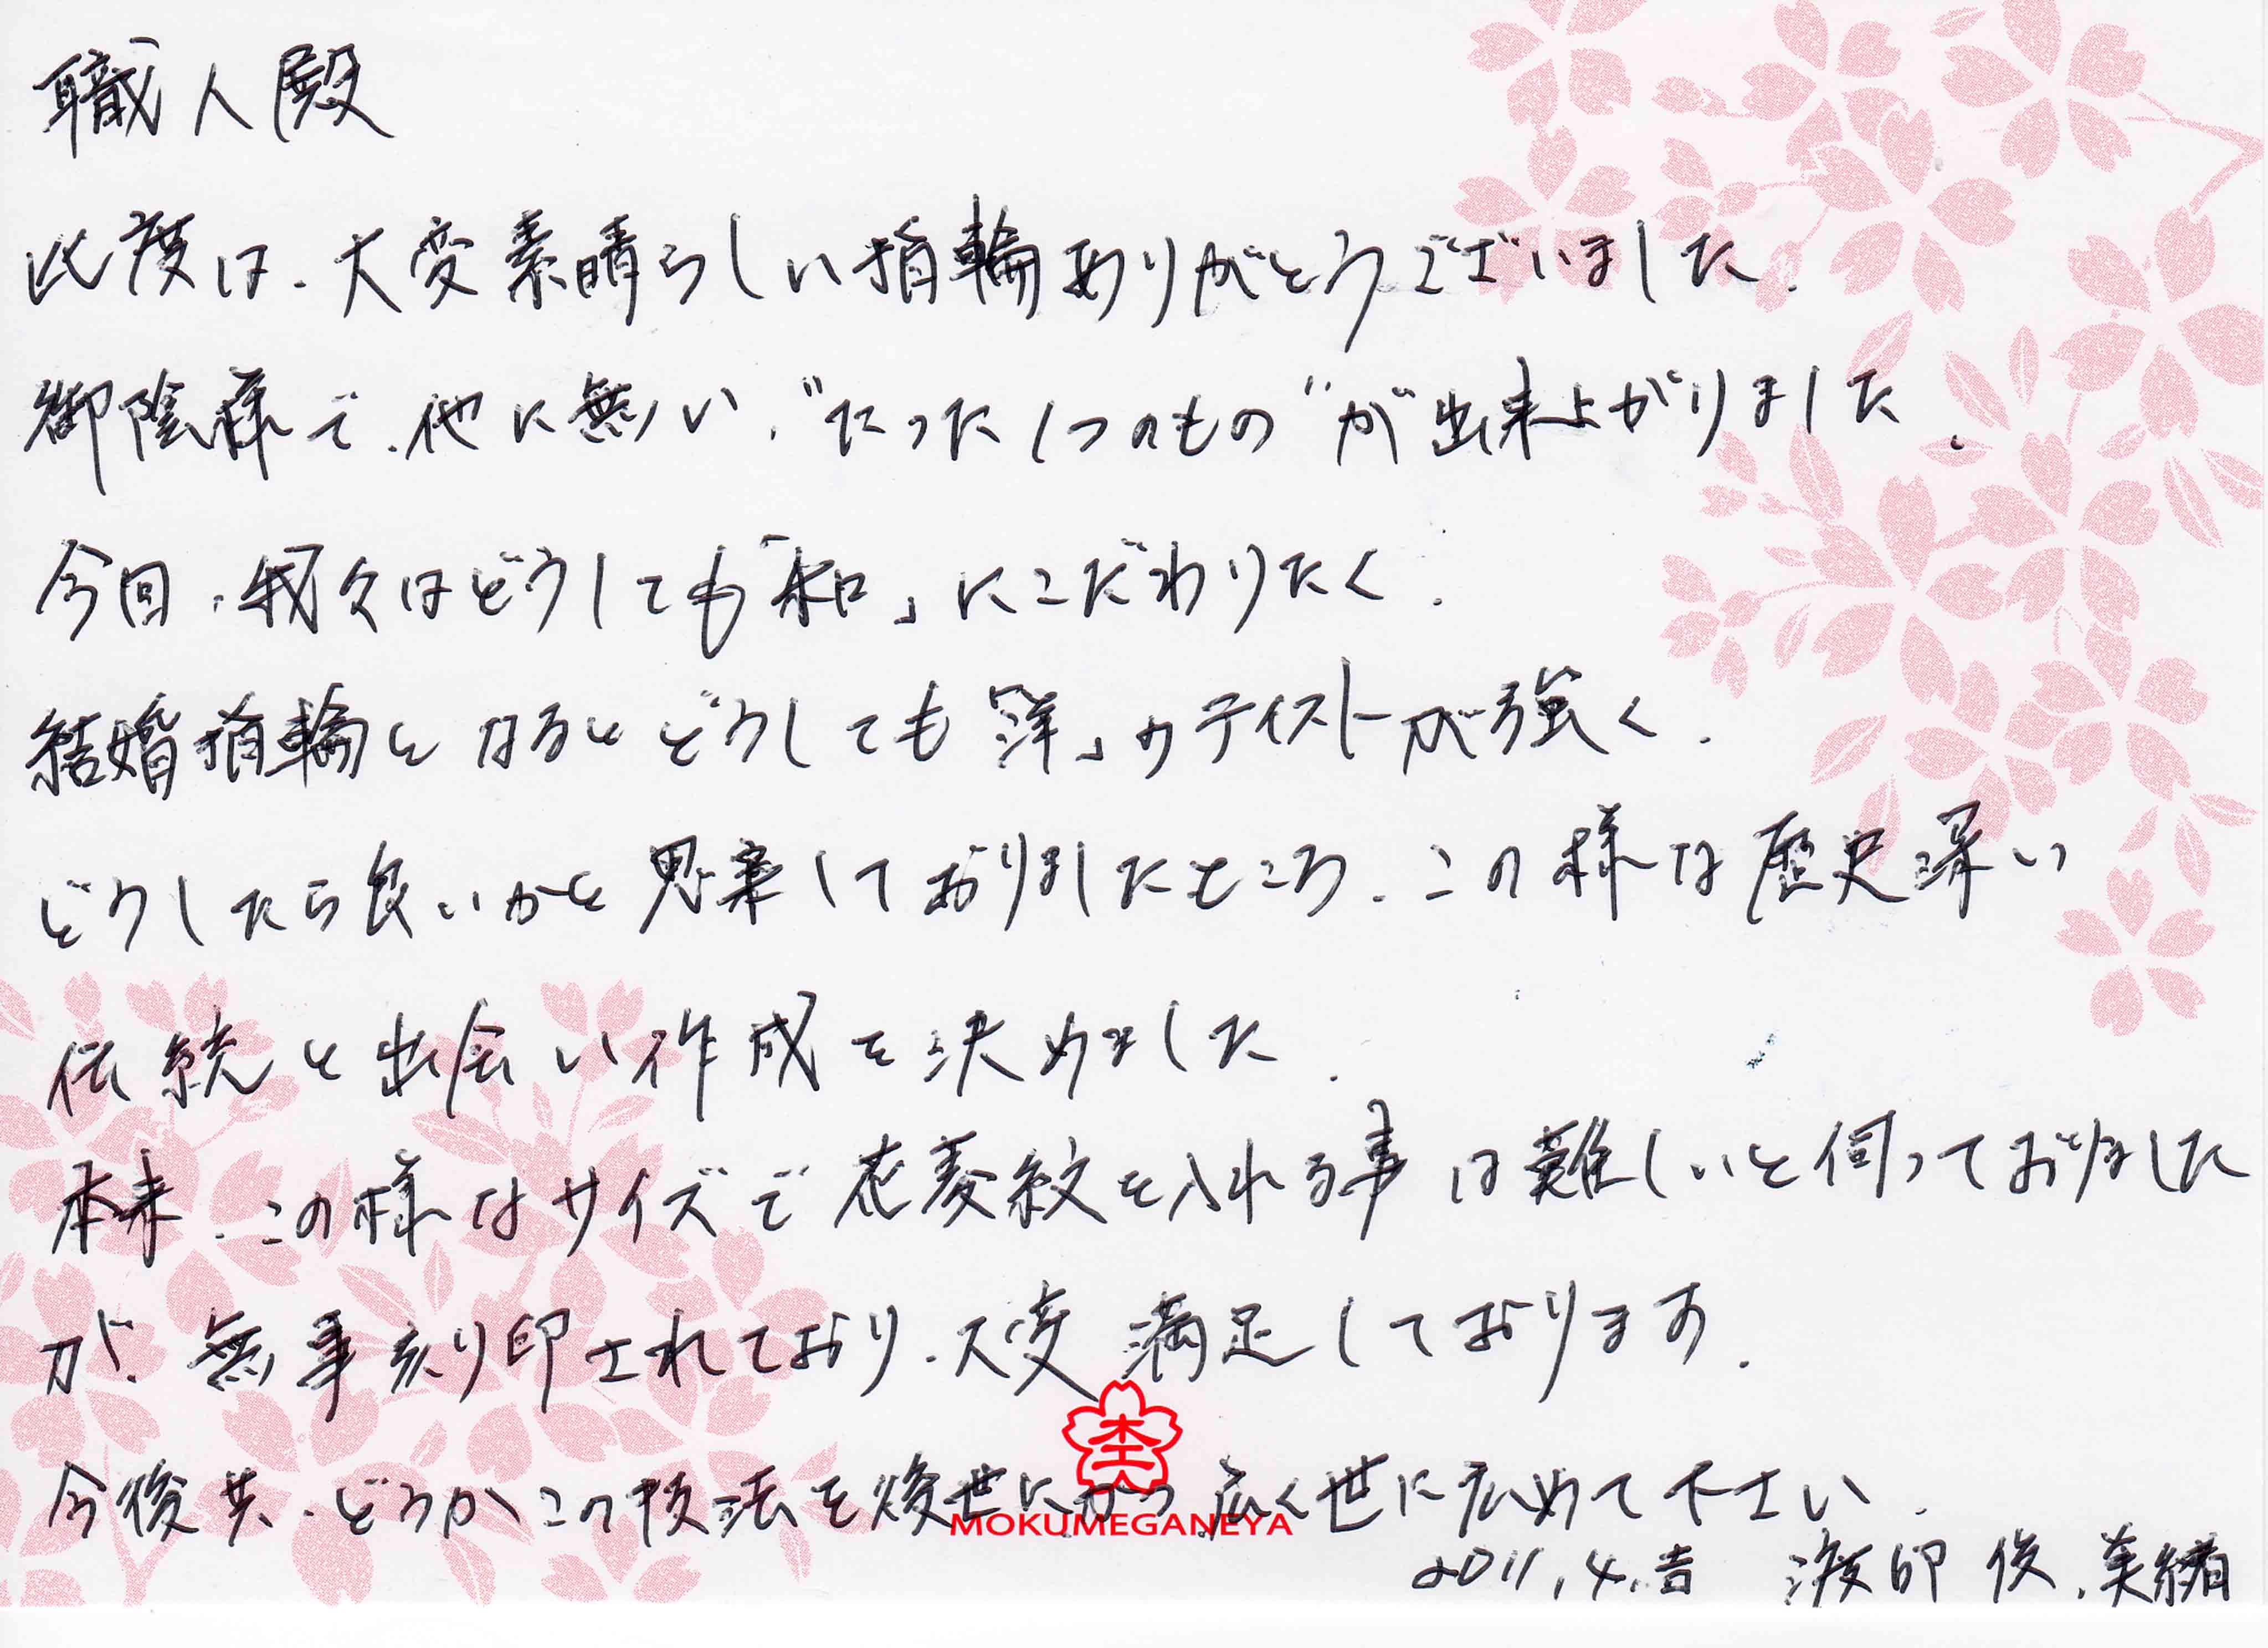 職人殿
此度は、大変素晴らしい指輪ありがとうございました。
御陰様で、他に無い、"たった1つのもの"が出来上がりました。
今回、我々はどうしても「和」にこだわりたく、
結婚指輪となるとどうしても「洋」のテイストが強く、
どうしたら良いかと思案しておりましたところ、この様な歴史深い
伝統と出会い作成を決めました。
本来、この様なサイズで花菱紋を入れる事は難しいと伺っておりました
が、無事刻印されており、大変満足しております。
今後共、どうかこの技法を後世に、かつ、広く世に広めて下さい。
MOKUMEGANEYA
2011.4.吉 渡 俊、美緒